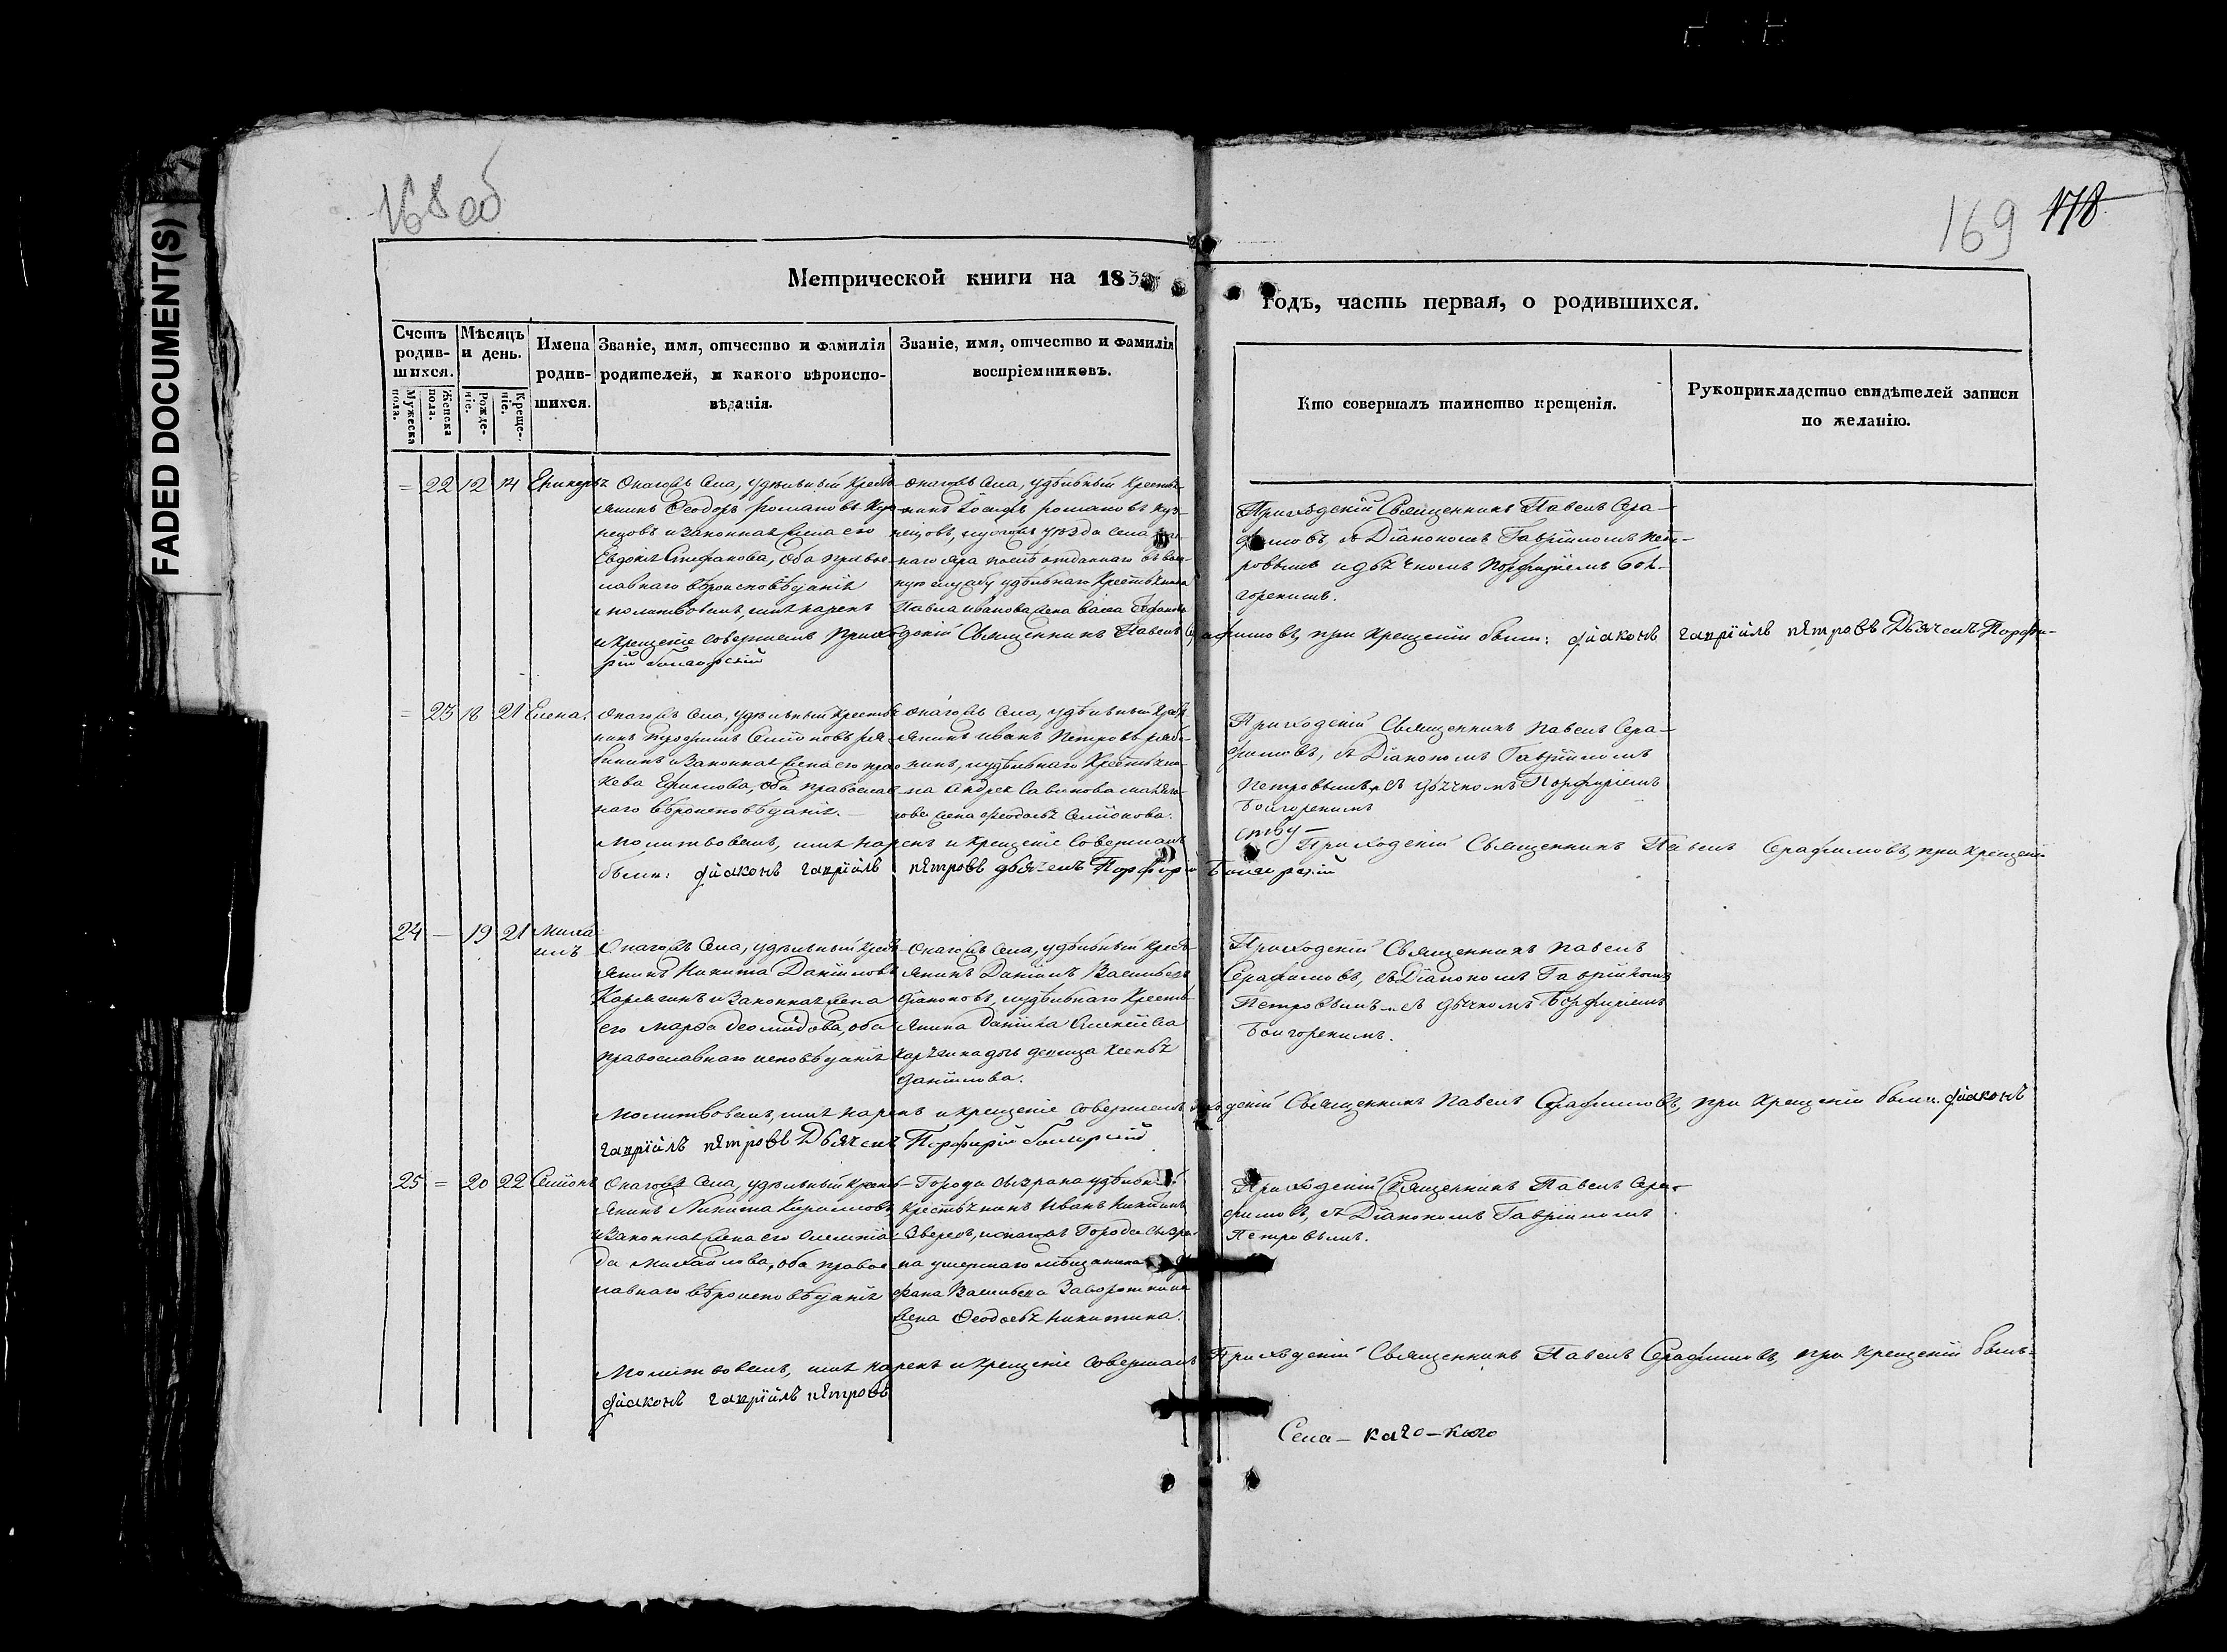 FADED DOCUMENT(S)
168 об
169 178
Метрической книги на 183
годъ, часть первая, о родившихся.
Счетъ родив-шихся.
Мужеска пола.
Женска пола.
Мѣсяцъ и день.
Рожде-ніе.
Креще-ніе.
Имена родив-шихся.
Званіе, имя, отчество и фамилія родителей, и какого вѣроиспо-вѣданія.
Званіе, имя, отчество и фамилія воспріемниковъ.
Кто совершалъ таинство крещенія.
Рукоприкладство свидѣтелей записи по желанію.
= 22 12 14
Онагожъ Села, удѣльный Кресть-
янинъ Ѳеодоръ Романовъ Куз-
нецовъ и Законная Жена его
Евдокія Стефанова, оба правос-
лавнаго вѣроисповѣданія
онагожъ Села, удѣльный Кресть-
нинъ Іосифъ Романовъ Куз-
нецовъ, уѣзда Села
ную службу удѣльнаго Крестьянина
Павла Иванова Жена
Приходскій Священникъ Павелъ Сера-
фимовъ, съ Діакономъ Гавріиломъ Пет-
ровымъ и дьячкомъ Порфиріемъ Бол-
горскимъ.
Молитвовалъ, имя нарекъ
и Крещеніе совершалъ Приходскій Священникъ Павелъ Серафимовъ, при Крещеніи были: діаконъ гавріилъ пѣтровъ Дьячекъ Порфи-
рій Болгорскій
= 23 18 21 Елена.
Онагожъ Села, удѣльный Крестья-
нинъ Трофимъ Семіоновъ Ря-
бининъ и Законная Жена его Прас-
кева Ефимова, оба православ-
наго вѣроисповѣданія.
онагожъ Села, удѣльный Крест-
янинъ Иванъ Петровъ Ряби-
нинъ, и удѣльнаго Крестьяни-
на Андрея Савинова
Жена Феодосья Семіонова.
Приходскій Священникъ Павелъ Сера-
фимовъ, съ Діакономъ Гавріиломъ
Петровымъ, и съ дьячкомъ Порфиріемъ
Болгорскимъ
Молитвовалъ, имя нарекъ и Крещеніе Совершалъ Приходскій Священникъ Павелъ Серафимовъ, при Крещеніи
были: діаконъ гавріилъ пѣтровъ дьячекъ Порфирій Болгорскій
24 – 19 21 Миха-
илъ
Онагожъ Села, удѣльный Крест-
янинъ Никита Даніиловъ
Карягинъ и Законная Жена
его Марѳа Деомидова, оба
православнаго исповѣданія
Онагожъ Села, удѣльный Крест-
янинъ Даніилъ Васильевъ
Діаконовъ, и удѣльнаго Кресть-
янина Даніила Алексѣева
Карягина дочь девица Ксенья
Данілова.
Приходскій Священникъ Павелъ
Серафимовъ, съ Діакономъ Гавріиломъ
Петровымъ и съ дьячкомъ Порфиріемъ
Болгорскимъ.
Молитвовалъ, имя нарекъ и крещеніе совершалъ Приходскій Священникъ Павелъ Серафимовъ, при Крещеніи были: діаконъ
гавріилъ пѣтровъ Дьячекъ Порфирій Болгорскій
25 = 20 22 Семіонъ
Онагожъ Села, удѣльный Кресть-
янинъ Никита Кириловъ
и Законная Жена его Олемпіа-
да Михайлова, оба правос-
лавнаго вѣроисповѣданія
Города Сызрана удѣльный
Крестьянинъ Иванъ Никитинъ
Зверевъ, и онагожъ Города Сызра-
на умершаго мѣщанина
фана Васильева Заворотнина
Жена Ѳеодосья Никитина.
Приходскій Священникъ Павелъ Сера-
фимовъ, съ Діакономъ Гавріиломъ
Петровымъ.
Молитвовалъ, имя нарекъ и Крещеніе Совершалъ Приходскій Священникъ Павелъ Серафимовъ, при Крещеніи былъ:
діаконъ гавріилъ пѣтровъ
Села –